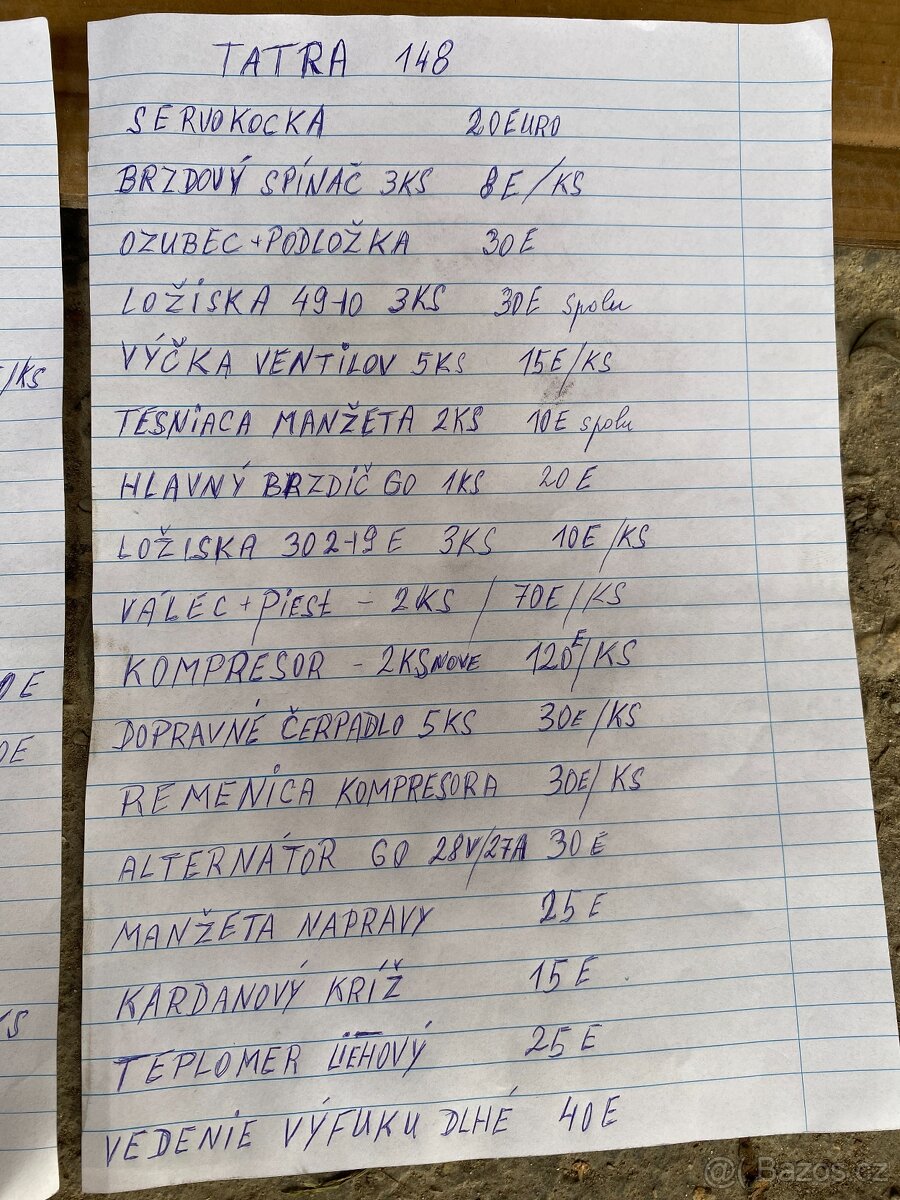 TATRA 148
SERVOKOCKA 20EURO
BRZDOVÝ SPÍNAČ 3KS 8E/KS
OZUBEC+PODLOŽKA 30E
LOŽISKA 49-10 3KS 30E spolu
VÝČKA VENTILOV 5KS 15E/KS
TESNIACA MANŽETA 2KS 10E spolu
HLAVNÝ BRZDIČ GO 1KS 20E
LOŽISKA 302-19E 3KS 10E/KS
VALEC+PIEST - 2KS / 70E//KS
KOMPRESOR - 2KS NOVE 120E/KS
DOPRAVNÉ ČERPADLO 5KS 30E/KS
REMENICA KOMPRESORA 30E/KS
ALTERNÁTOR GO 28V/27A 30E
MANŽETA NAPRAVY 25E
KARDANOVÝ KRÍŽ 15E
TEPLOMER LIEHOVÝ 25E
VEDENIE VÝFUKU DLHÉ 40E
/KS
0E
0E
KS
@ Bazos.cz